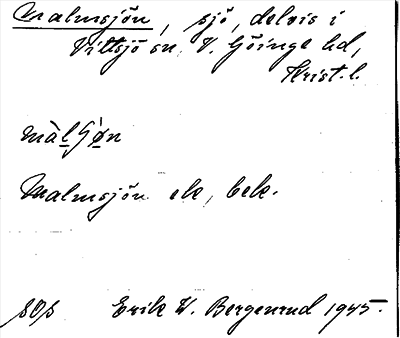 Malmsjön, sjö, delvis i
Vittsjö sn. V. Göinge hd,
Krist. l.
Malmsjön ek, bek.
SOS Erik W. Bergenrud 1945